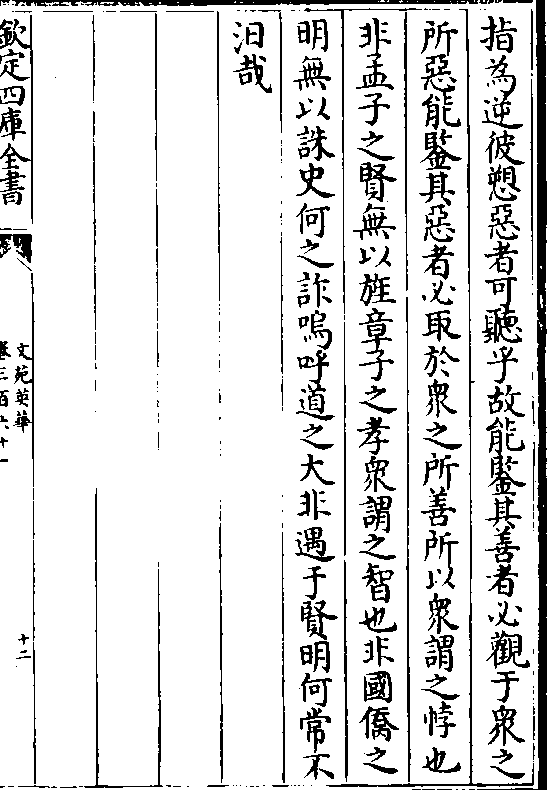 指為逆彼愬惡者可聽乎故能鑒其善者必觀于衆之
所惡能鑒其惡者必取於衆之所善所以衆謂之悖也
非孟子之賢無以旌章子之孝衆謂之智也非國僑之
明無以誅史何之詐嗚呼道之大非遇于賢明何常不
汨哉
欽定四庫全書
文苑英華
卷三百六十一
十二